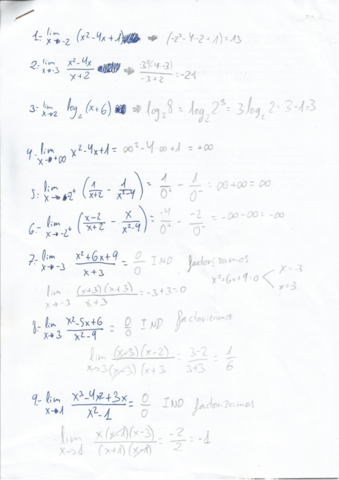 1- lim x→-2 (x²-4x+1) ⇒ (-2²-4·2+1)=13
2- lim x→-3 x²-4x / x+2 ⇒ 3²(4·3) / -3+2 = -21
3- lim x→2 log₂(x+6) ⇒ log₂8 = log₂2³ = 3log₂2 = 3·1=3
4- lim x→+∞ x²-4x+1 = ∞²-4·∞+1 = +∞
5- lim x→-2⁺ (1/x+2 - 1/x²-4) = 1/0⁺ - 1/0⁻ = ∞+∞ = ∞
6- lim x→-2⁻ (x-2/x+2 - x/x²-4) = -4/0⁺ - -2/0⁻ = -∞-∞ = -∞
7- lim x→-3 x²+6x+9 / x+3 = 0/0 IND factorizamos
x²+6x+9=0 < x=-3 x=3
lim x→-3 (x+3)(x+3) / x+3 = -3+3=0
8- lim x→3 x²-5x+6 / x²-9 = 0/0 IND factorizamos
lim x→3 (x-3)(x-2) / (x-3)(x+3 = 3-2 / 3+3 = 1/6
9- lim x→1 x³-4x²+3x / x²-1 = 0/0 IND factorizamos
lim x→1 x(x-1)(x-3) / (x+1)(x-1) = -2/2 = -1